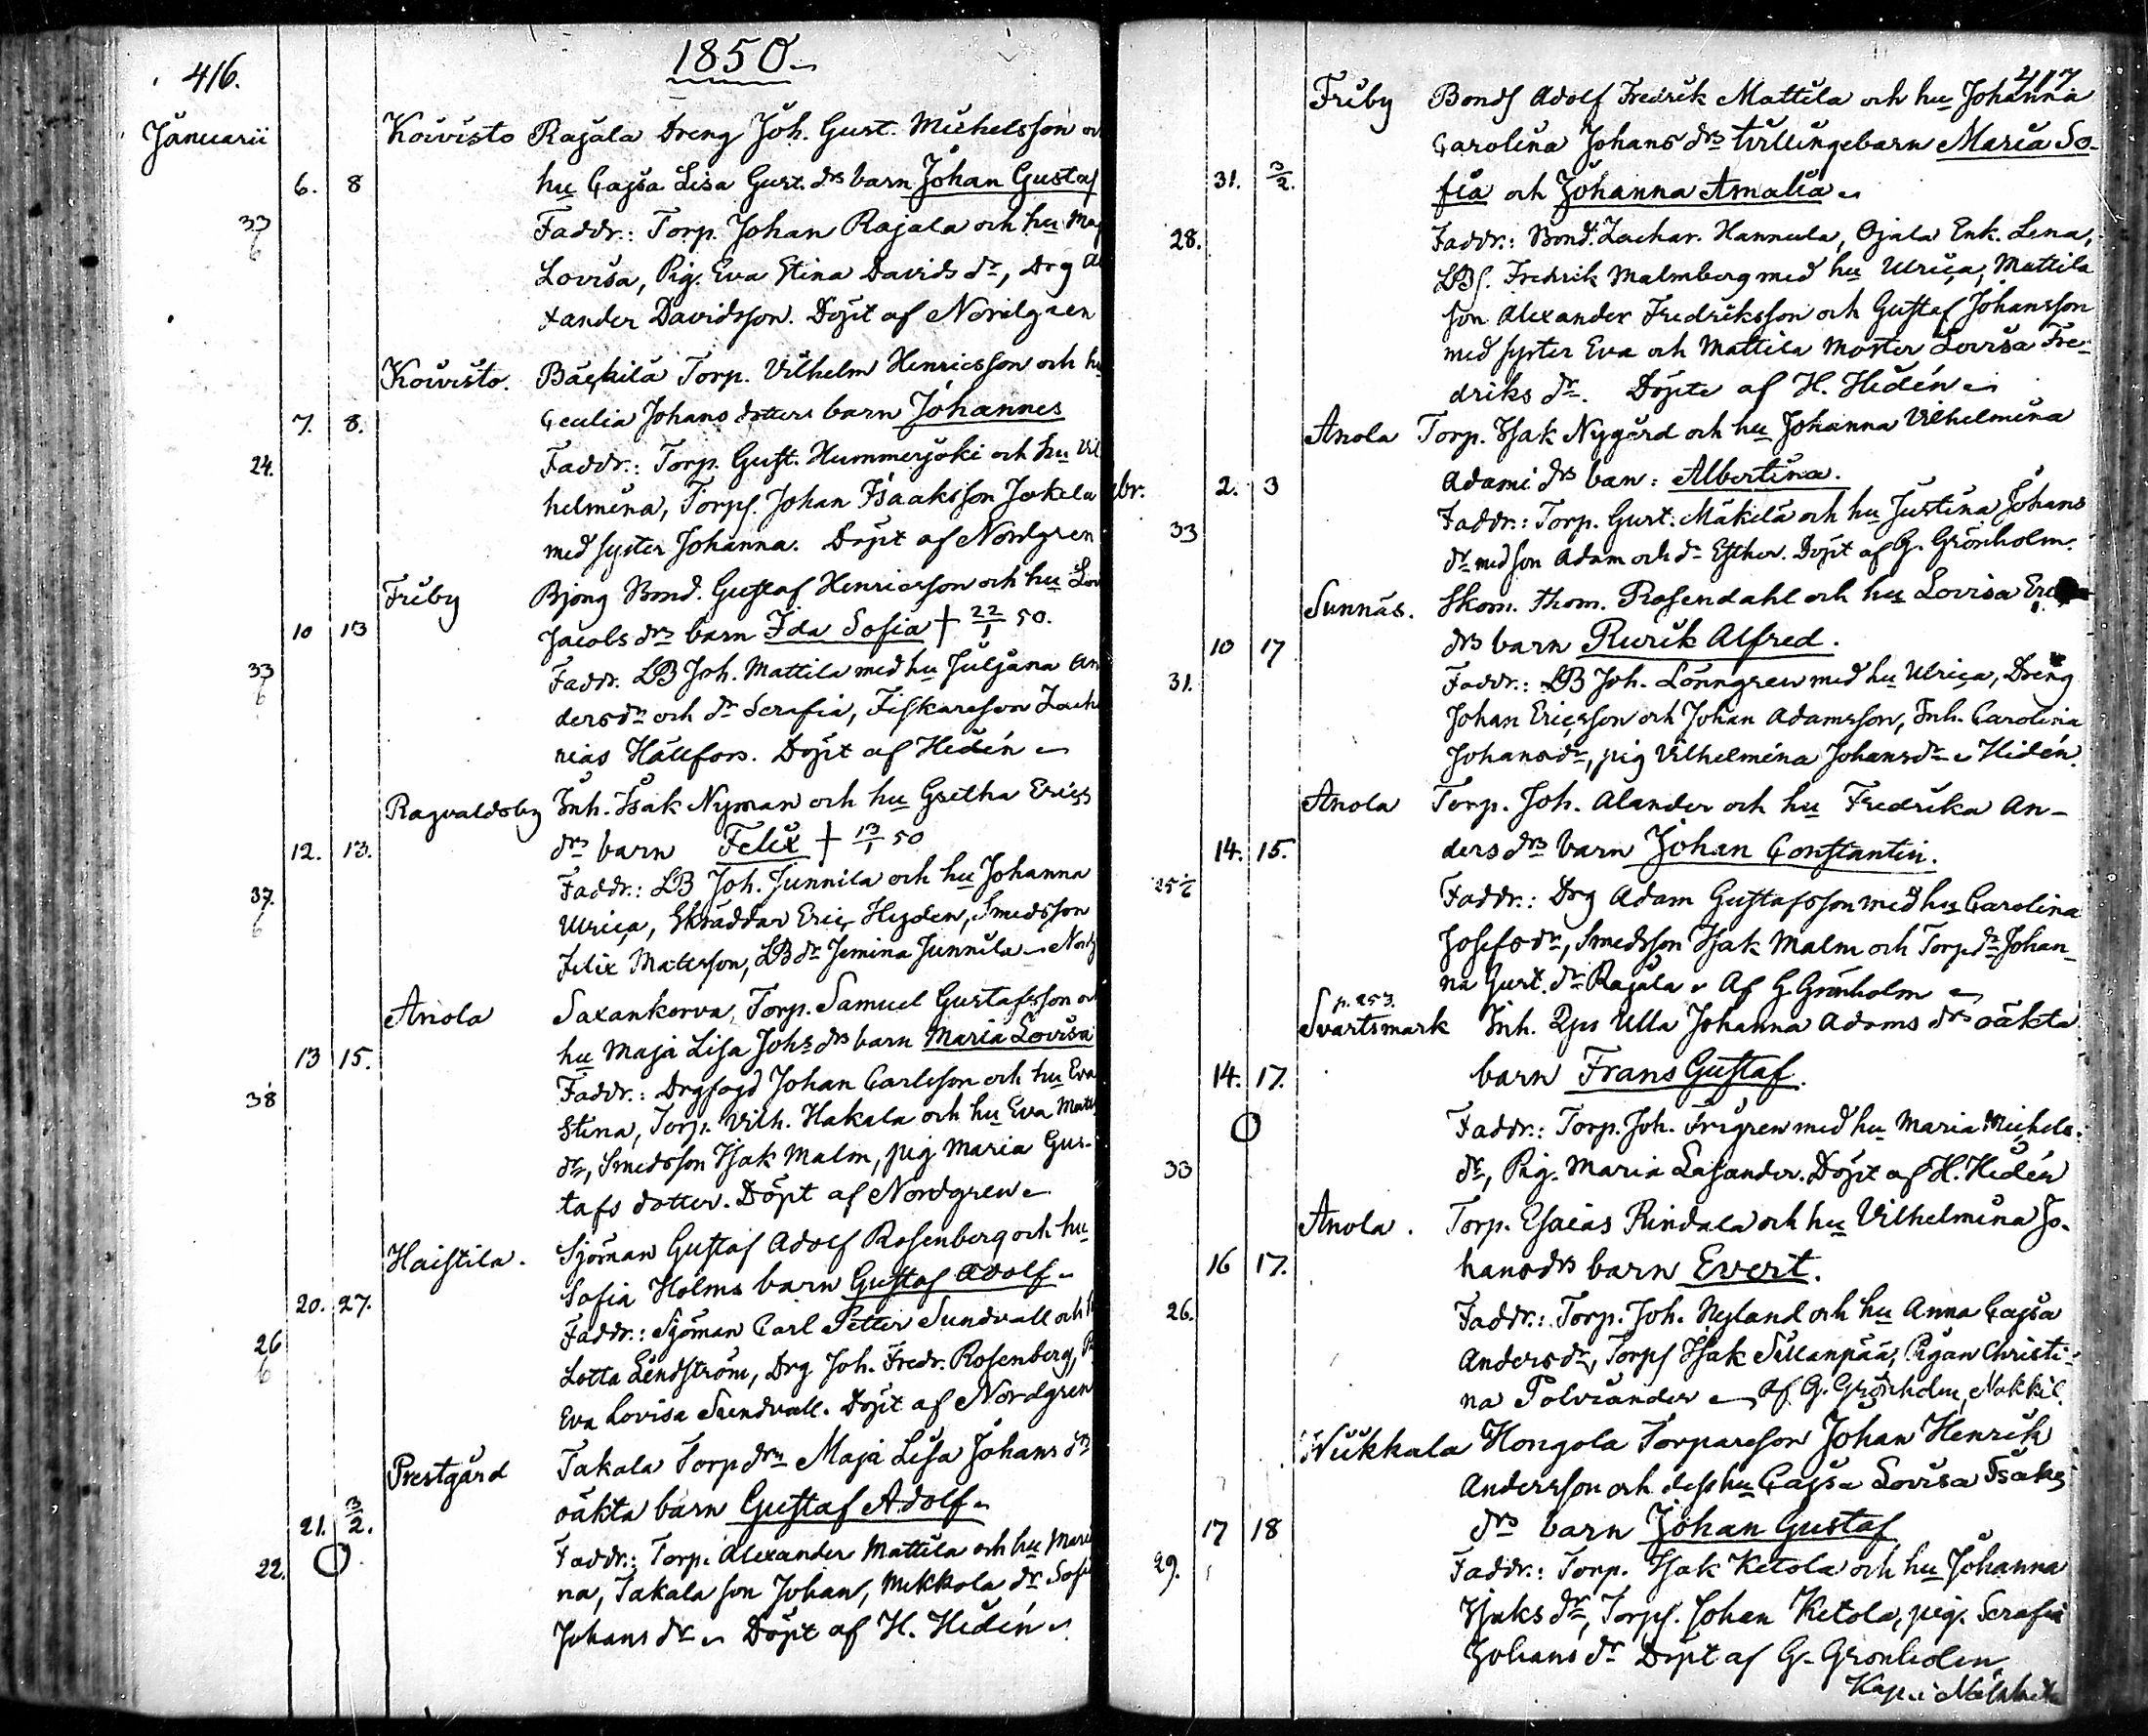 416.
1850
Januarii
Koivisto Rajala Dreng Joh. Gust. Michelsson
6. 8 hu Cajsa Lisa Gust. drs barn Johan Gustaf
33 Faddr.: Torp. Johan Rajala och hu Maj
6 Lovisa, Pig. Eva Stina Davids dr, Drg
xander Davidsson. Döpt af Nordgren
Koivisto. Bäckilä Torp. Vilhelm Henricsson och hu
7. 8. Cecilia Johans dotters barn Johannes
24. Faddr.: Torp. Gust. Hummerjoki och hu Vil
helmina, Torps. Johan Isaaksson Jokela
med syster Johanna. Döpt af Nordgren
Friby Björg Bond. Gustaf Henricsson och hu Lov
10 13 Jacobs drs barn Ida Sofia + 22/1 50.
33 Faddr. LB Joh. Mattila med hu Juljana An
6 dersdr och dr Serafia, Fiskareson Zacha
rias Hällfors. Döpt af Hidén
Ragvaldsby Inh. Isak Nyman och hu Gretha Erics
12. 13. drs barn Felix + 13/1 50
37. Faddr.: LB Joh. Junnila och hu Johanna
6 Ulrica, Skräddar Eric Heyden, Smedsson
Felix Mattsson, LB dr Jemina Junnila Nordg
Anola Saxankorva, Torp. Samuel Gustafsson och
13 15. hu Maja Lisa Johs drs barn Maria Lovisa
38 Faddr.: Drgfogd Johan Carlsson och hu Eva
Stina, Torp. Vilh. Hakala och hu Eva Matts
dr, Smedsson Isak Malm, pig Maria Gus-
tafs dotter. Döpt af Nordgren
Haistila. Sjöman Gustaf Adolf Rosenberg och hu
20. 27. Sofia Holms barn Gustaf Adolf
26 Faddr.: Sjöman Carl Petter Sundvall och
6 Lotta Lindström, Drg Joh. Fredr. Rosenberg,
Eva Lovisa Sundvall. Döpt af Nordgren
Prestgård Takala Torp drn Maja Lisa Johans drs
21. 3/2. oäkta barn Gustaf Adolf
22. Faddr.: Torp. Alexander Mattila och hu Mari
na, Takala son Johan, Mikkola dr Sofi
Johans dr Döpt af H. Hidén
417
Friby Bonds Adolf Fredrik Mattila och hu Johanna
Carolina Johans drs tvillingebarn Maria So-
31. 3/2. fia och Johanna Amalia
28. Faddr.: Bond. Zachar. Hannula, Ojala Enk. Lena,
LBs. Fredrik Malmberg med hu Ulrica, Mattila
son Alexander Fredriksson och Gustaf Johansson
med syster Eva och Mattila Moster Lovisa Fre-
driks dr. Döpte af H. Hidén
Anola Torp. Isak Nygård och hu Johanna Vilhelmina
br. 2. 3 Adami drs ban: Albertina.
33 Faddr.: Torp. Gust. Mäkelä och hu Justina Johans
dr med son Adam och dr Esther. Döpt af G. Grönholm.
Sunnäs. Skom. Thom. Rosendahl och hu Lovisa Eri
10 17 drs barn Rurik Alfred.
31. Faddr.: LB Joh. Lönngren med hu Ulrica, Dreng
Johan Ericsson och Johan Adamsson, Inh. Carolina
Johansdr, pig Vilhelmina Johansdr Hidén.
Anola Torp. Joh. Alander och hu Fredrika An-
14. 15. ders drs barn Johan Constantin.
25 1/6 Faddr.: Drg Adam Gustafsson med hu Carolina
Josefsdr, Smedsson Isak Malm och Torp. dr Johan-
na Gust. dr Rajala Af G. Grönholm
p. 253.
Svartsmark Inh. Qps Ulla Johanna Adams drs oäkta
14. 17. barn Frans Gustaf.
Faddr.: Torp. Joh. Frigren med hu Maria Michels-
33 dr, Pig. Maria Lasander. Döpt af H. Hidén
Anola. Torp. Esaias Rindala och hu Vilhelmina Jo-
16 17. hansdrs barn Evert.
26. Faddr.: Torp. Joh. Nyland och hu Anna Cajsa
Andersdr, Torps Isak Sillanpää, Pigan Christi-
na Tolviander Af G. Grönholm, Nakkil.
Wiikkala Hongola Torpareson Johan Henrik
Andersson och dess hu Cajsa Lovisa Isaks
17 18 drs barn Johan Gustaf
29. Faddr.: Torp. Isak Ketola och hu Johanna
Isaks dr, Torps. Johan Ketola, pig. Serafia
Johans dr Döpt af G. Grönholm
Kap. i